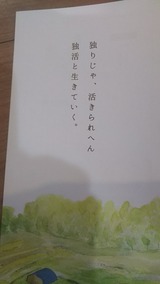 独りじゃ、活きられへん
独活と生きていく。